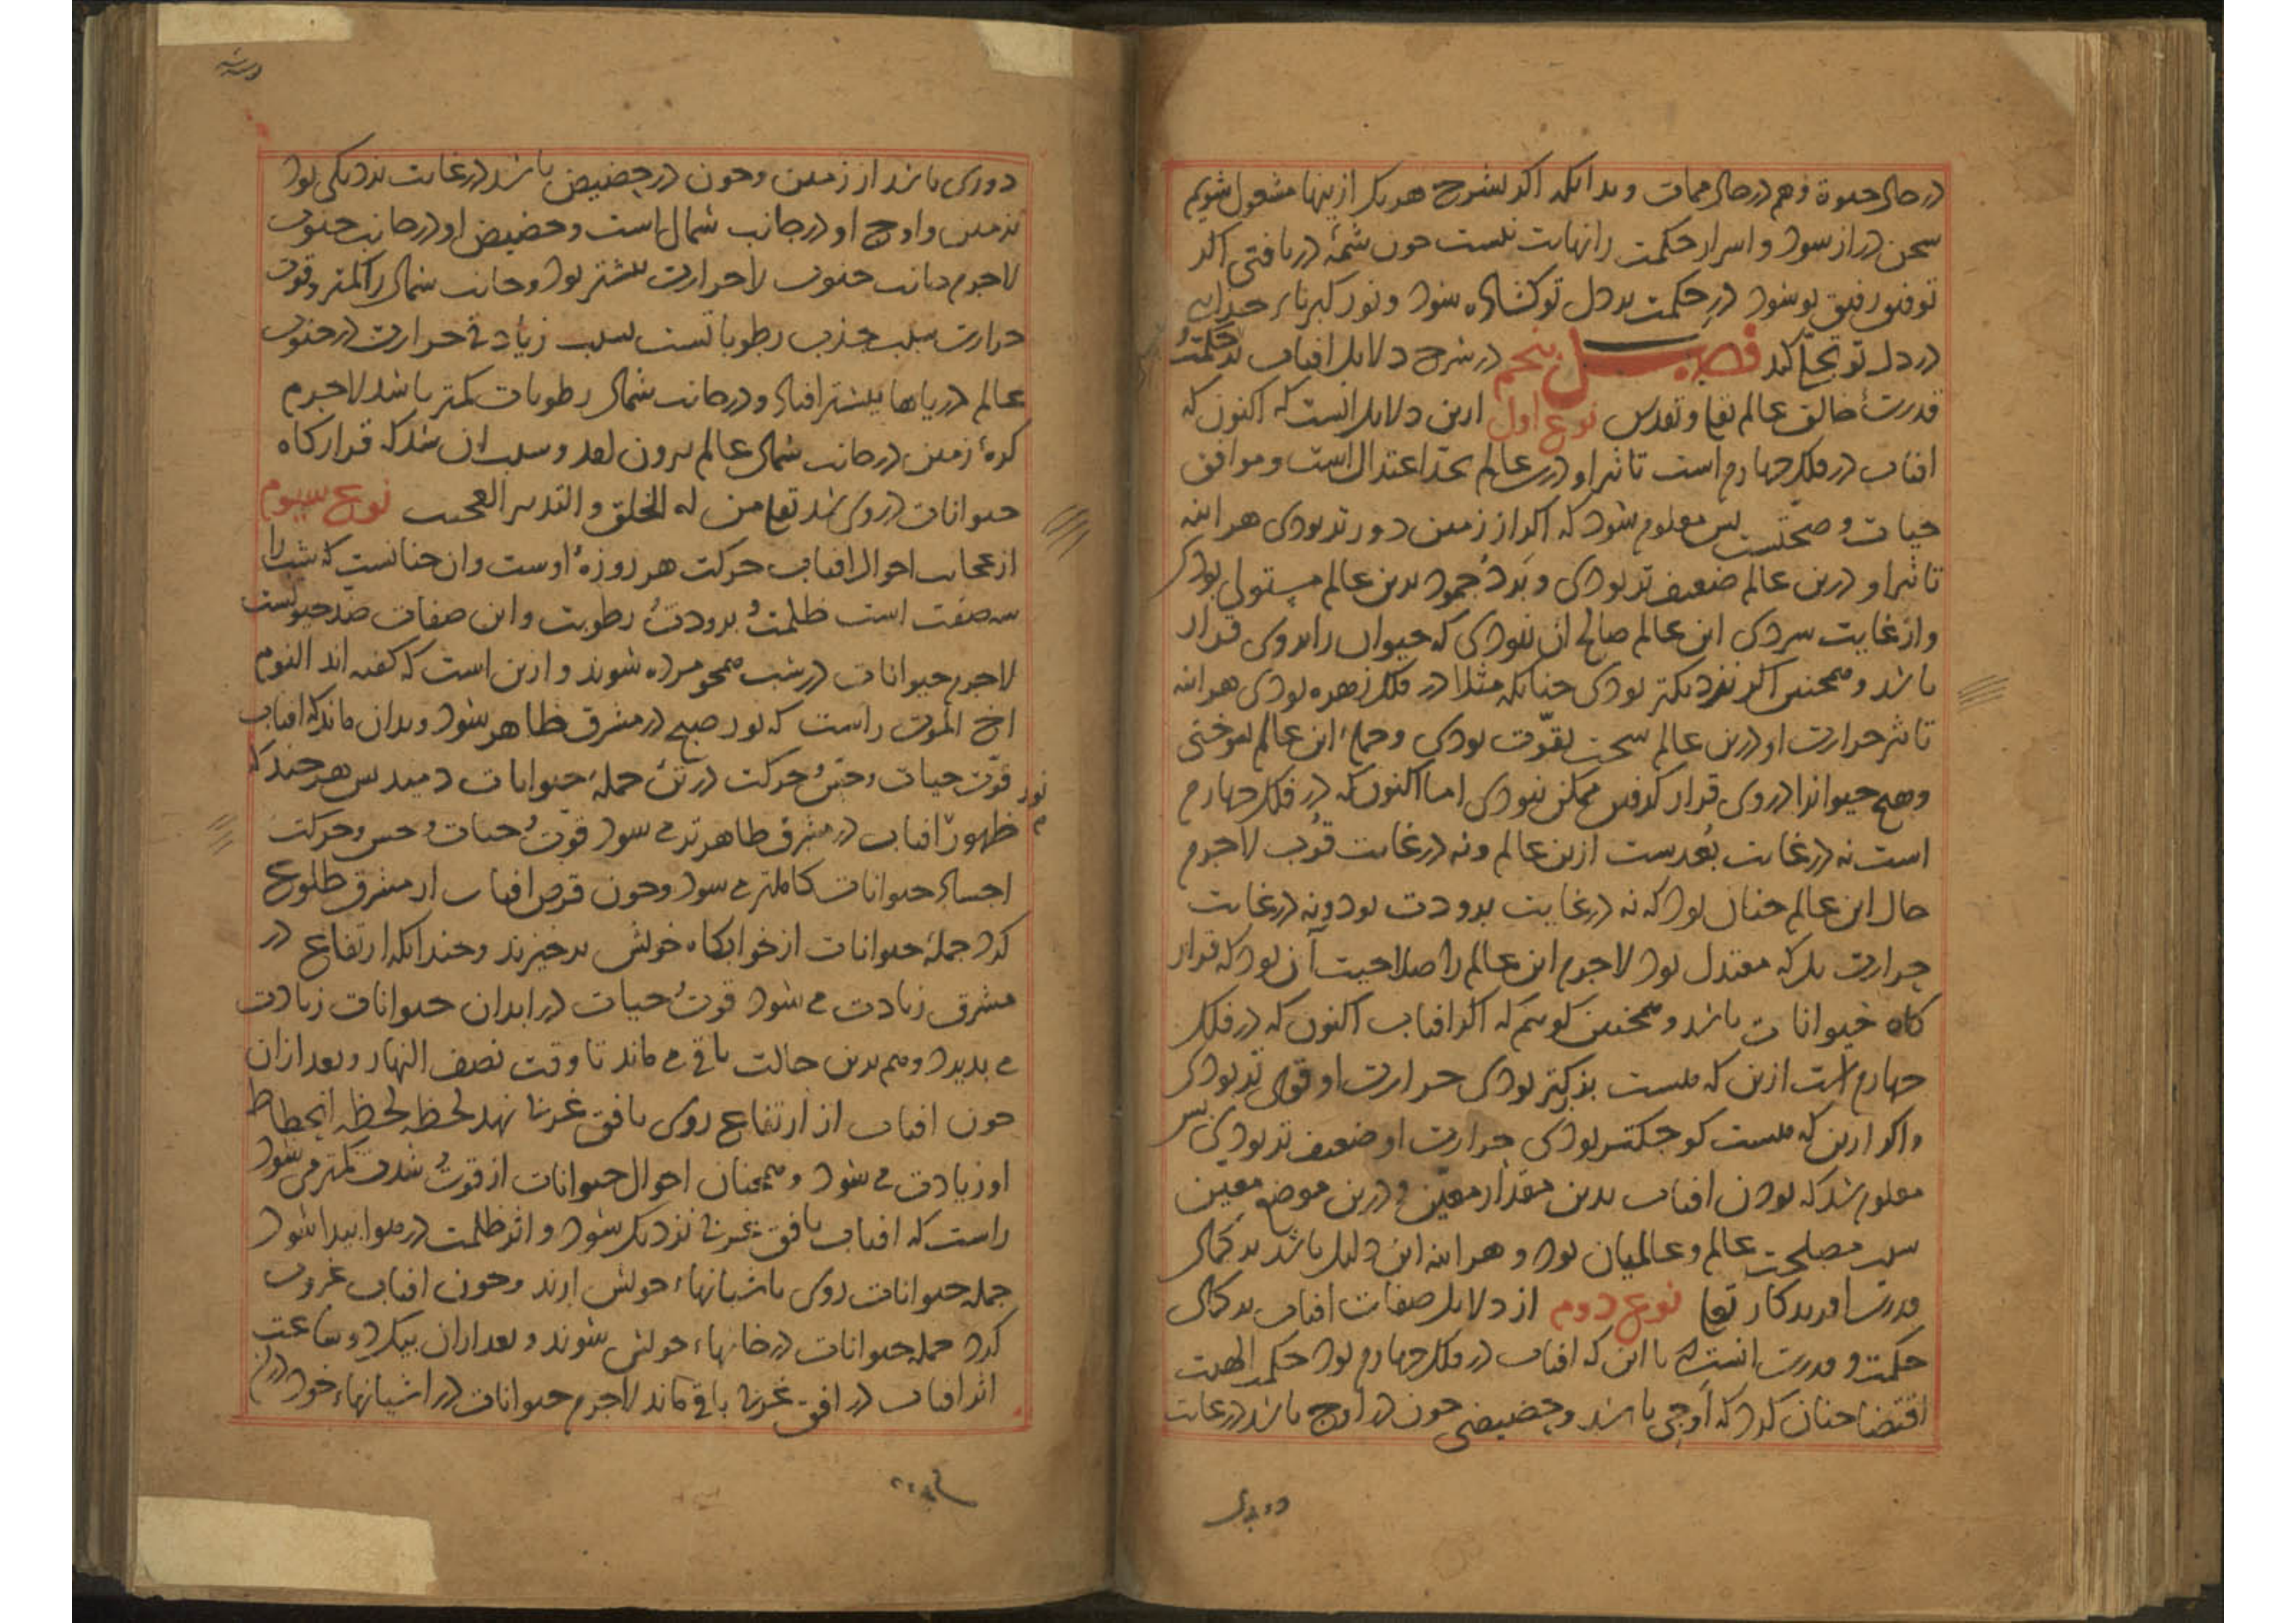 در حال حیوة و هم در حال ممات و بدانکه اگر بشرح هر یک ازینها مشغول شویم
سخن دراز شود و اسرار حکمت را نهایت نیست چون شمهٔ دریافتی اگر
توفیق رفیق تو شود درِ حکمت بر دل تو گشاده شود و نور کبریاء خدای
در دل تو تجلّی کند فصل پنجم در شرح دلایل افتاب بر حکمت
قدرت خالق عالم تعا و تقدس نوع اول ازین دلایل انست که اکنون که
افتاب در فلک چهارم است تاثیر او درین عالم بحد اعتدال است و موافق
حیات و صحّتست پس معلوم شود که اگر از زمین دورتر بودی هراینه
تاثیر او درین عالم ضعیف تر بودی و بَرد و جمود برین عالم مستولی بودی
و از غایت سردی این عالم صالح ان نبودی که حیوان را بر وی قرار
باشد و همچنین اگر نزدیکتر بودی چنانکه مثلا در فلک زهره بودی هراینه
تاثیر حرارت او درین عالم سخت بقوّت بودی و جملهٔ این عالم بسوختی
و هیچ حیوانرا در وی قرار گرفتن ممکن نبودی اما اکنون که در فلک چهارم
است نه در غایت بُعدست ازین عالم و نه در غایت قُرب لاجرم
حال این عالم چنان بود که نه در غایت برودت بود و نه در غایت
حرارت بل که معتدل بود لاجرم این عالم را صلاحیت آن بود که قرار
گاه حیوانات باشد و همچنین گوییم که اگر افتاب اکنون که در فلک
چهارم است ازین که هست بزرگتر بودی حرارت او قوی تر بودی
و اگر ازین که هست کوچکتر بودی حرارت او ضعیف تر بودی پس
معلوم شد که بودن افتاب بدین مقدار معیّن و درین موضع معین
سبب مصلحت عالم و عالمیان بود و هراینه این دلیل باشد بر کمال
قدرت افریدکار تعا نوع دوم از دلایل صفات افتاب بر کمال
حکمت و قدرت انست که با این که افتاب در فلک چهارم بود حکمت الهیت
اقتضا چنان کرد که اوجی باشد و حضیضی چون در اوج باشد در غایت
دوری باشد از زمین و چون در حضیض باشد در غایت نزدیکی بود
بزمین و اوج او در جانب شمال است و حضیض او در جانب جنوب
لاجرم جانب جنوب را حرارت بیشتر بود و جانب شمال را کمتر و قوت
حرارت سبب جذب رطوباتست بسبب زیادتی حرارت در جنوب
عالم دریاها بیشتر افتاد و در جانب شمال رطوبات کمتر باشد لاجرم
کرهٔ زمین در جانب شمال عالم برون افتد و سبب ان شد که قرارگاه
حیوانات در وی شد تعا من له الخلق و التدبیر العجیب نوع سیوم
از عجایب احوال افتاب حرکت هر روزهٔ اوست و ان چنانست که شب را
سه صفت است ظلمت و برودت و رطوبت و این صفات ضد حیوتست
لاجرم حیوانات در شب همچو مرده شوند و ازین است که گفته اند النوم
اخ الموت راست که نور صبح در مشرق ظاهر شود و بدان ماند که افتاب
نور قوّت حیات و حس و حرکت در تن جملهٔ حیوانات دمید پس هرچند که
ظهور افتاب در مشرق ظاهرتر می شود قوّت و حیات و حس و حرکت
اجساد حیوانات کاملتر می شود و چون قرص افتاب از مشرق طلوع
کرد جملهٔ حیوانات از خوابگاه خویش برخیزند و چندانکه ارتفاع در
مشرق زیادت می شود قوت و حیات در ابدان حیوانات زیادت
می پدیرد و هم برین حالت باقی می ماند تا وقت نصف النهار و بعد ازان
چون افتاب از ارتفاع روی بافق غربی نهد لحظه لحظه انحطاط
او زیادت می شود و همچنان احوال حیوانات از قوت و شدت کمتر می شود
راست که افتاب بافق غربی نزدیک شود و اثر ظلمت در هوا پیدا شود
جمله حیوانات روی باشیانهاء خویش ارند و چون افتاب غروب
کرد جمله حیوانات در خانهاء خویش شوند و بعد ازان بیک دو ساعت
اثر افتاب در افق غربی باقی ماند لاجرم حیوانات در اشیانهاء خود درین